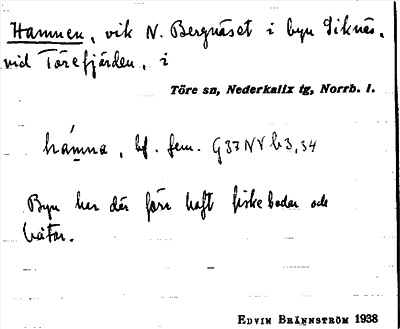 Hamnen, vik N. Bergnäset i byn Siknäs,
vid Törefjärden, i
Töre sn, Nederkalix tg, Norrb. l.
hámna, bf. fem. G37NV b3,34
Byn har där förr haft fiskebodar och
båtar.
EDVIN BRÄNNSTRÖM 1938